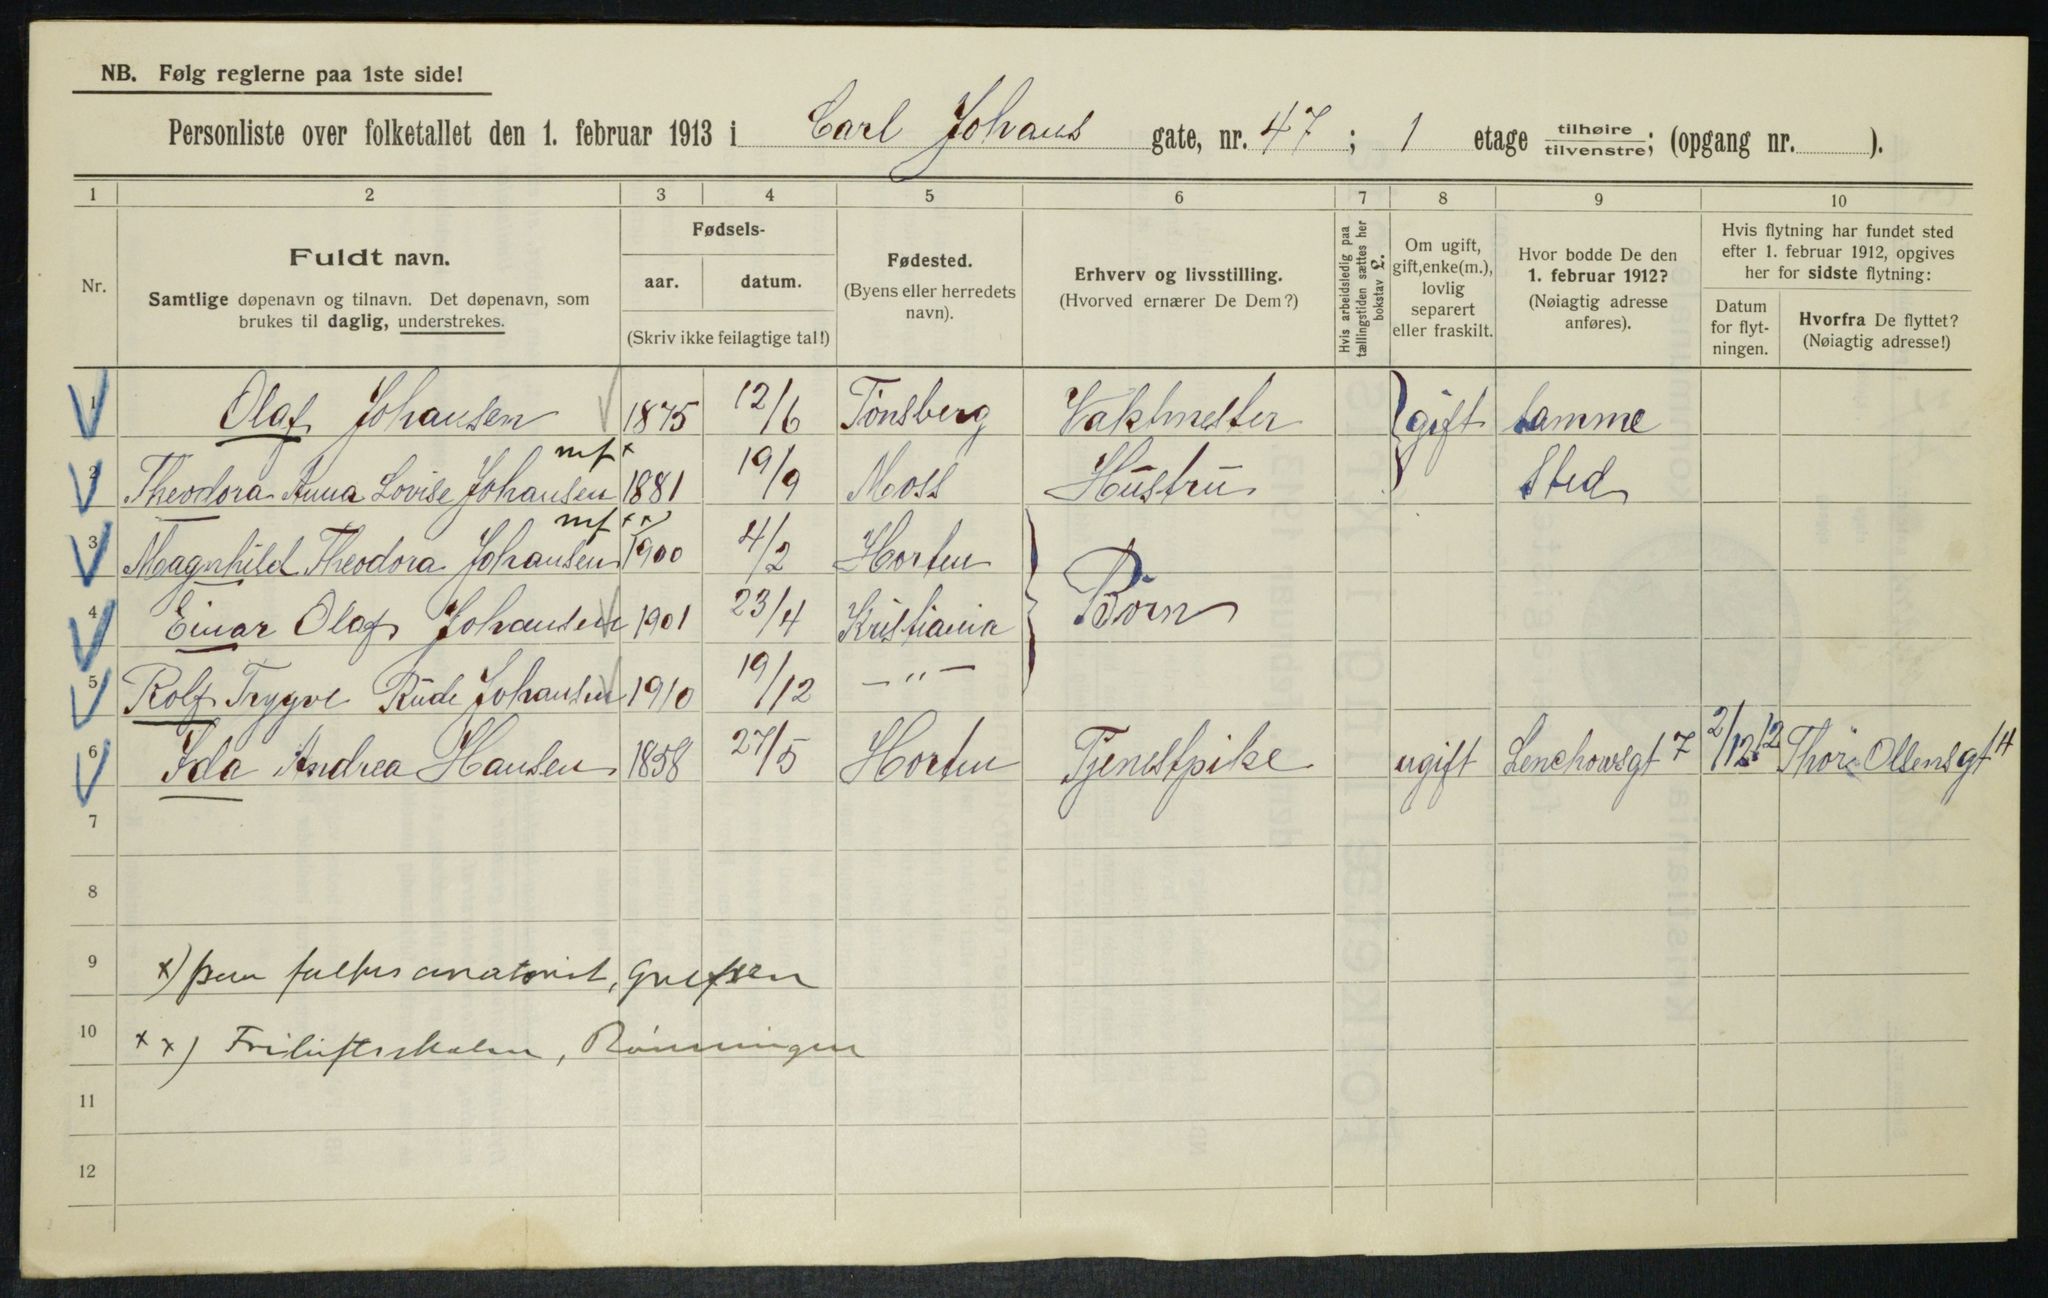 NB. Følg reglerne paa 1ste side!
Personliste over folketallet den 1. februar 1913 i Carl Johans gate, nr. 47; 1 etage tilhøire tilvenstre; (opgang nr. ).
1 2 3 4 5 6 7 8 9 10
Nr.
Fuldt navn.
Samtlige døpenavn og tilnavn. Det døpenavn, som
brukes til daglig, understrekes.
Fødsels-
aar. datum.
(Skriv ikke feilagtige tal!)
Fødested.
(Byens eller herredets
navn).
Erhverv og livsstilling.
(Hvorved ernærer De Dem?)
Hvis arbeidsledig paa
tællingstiden sættes her
bokstav L.
Om ugift,
gift, enke(m.),
lovlig
separert
eller fraskilt.
Hvor bodde De den
1. februar 1912?
(Nøiagtig adresse
anføres).
Hvis flytning har fundet sted
efter 1. februar 1912, opgives
her for sidste flytning:
Datum
for flyt-
ningen.
Hvorfra De flyttet?
(Nøiagtig adresse!)
1 Olaf Johansen 1875 12/6 Tönsberg Vaktmester gift samme
2 Theodora Anna Lovise Johansen mf x 1881 19/9 Moss Hustru Sted
3 Magnhild Theodora Johansen mf xx) 1900 4/2 Horten Börn
4 Einar Olaf Johansen 1901 23/4 Kristiania
5 Rolf Trygve Rude Johansen 1910 19/12 — " —
6 Ida Andrea Hansen 1858 27/5 Horten Tjenestpike ugift Lenchowsgt 7 2/12 12 Thor Olsensgt 4
7
8
9 x) paa sanatoriet, Grefsen
10 xx) Friluftsskolen, Rönningen
11
12